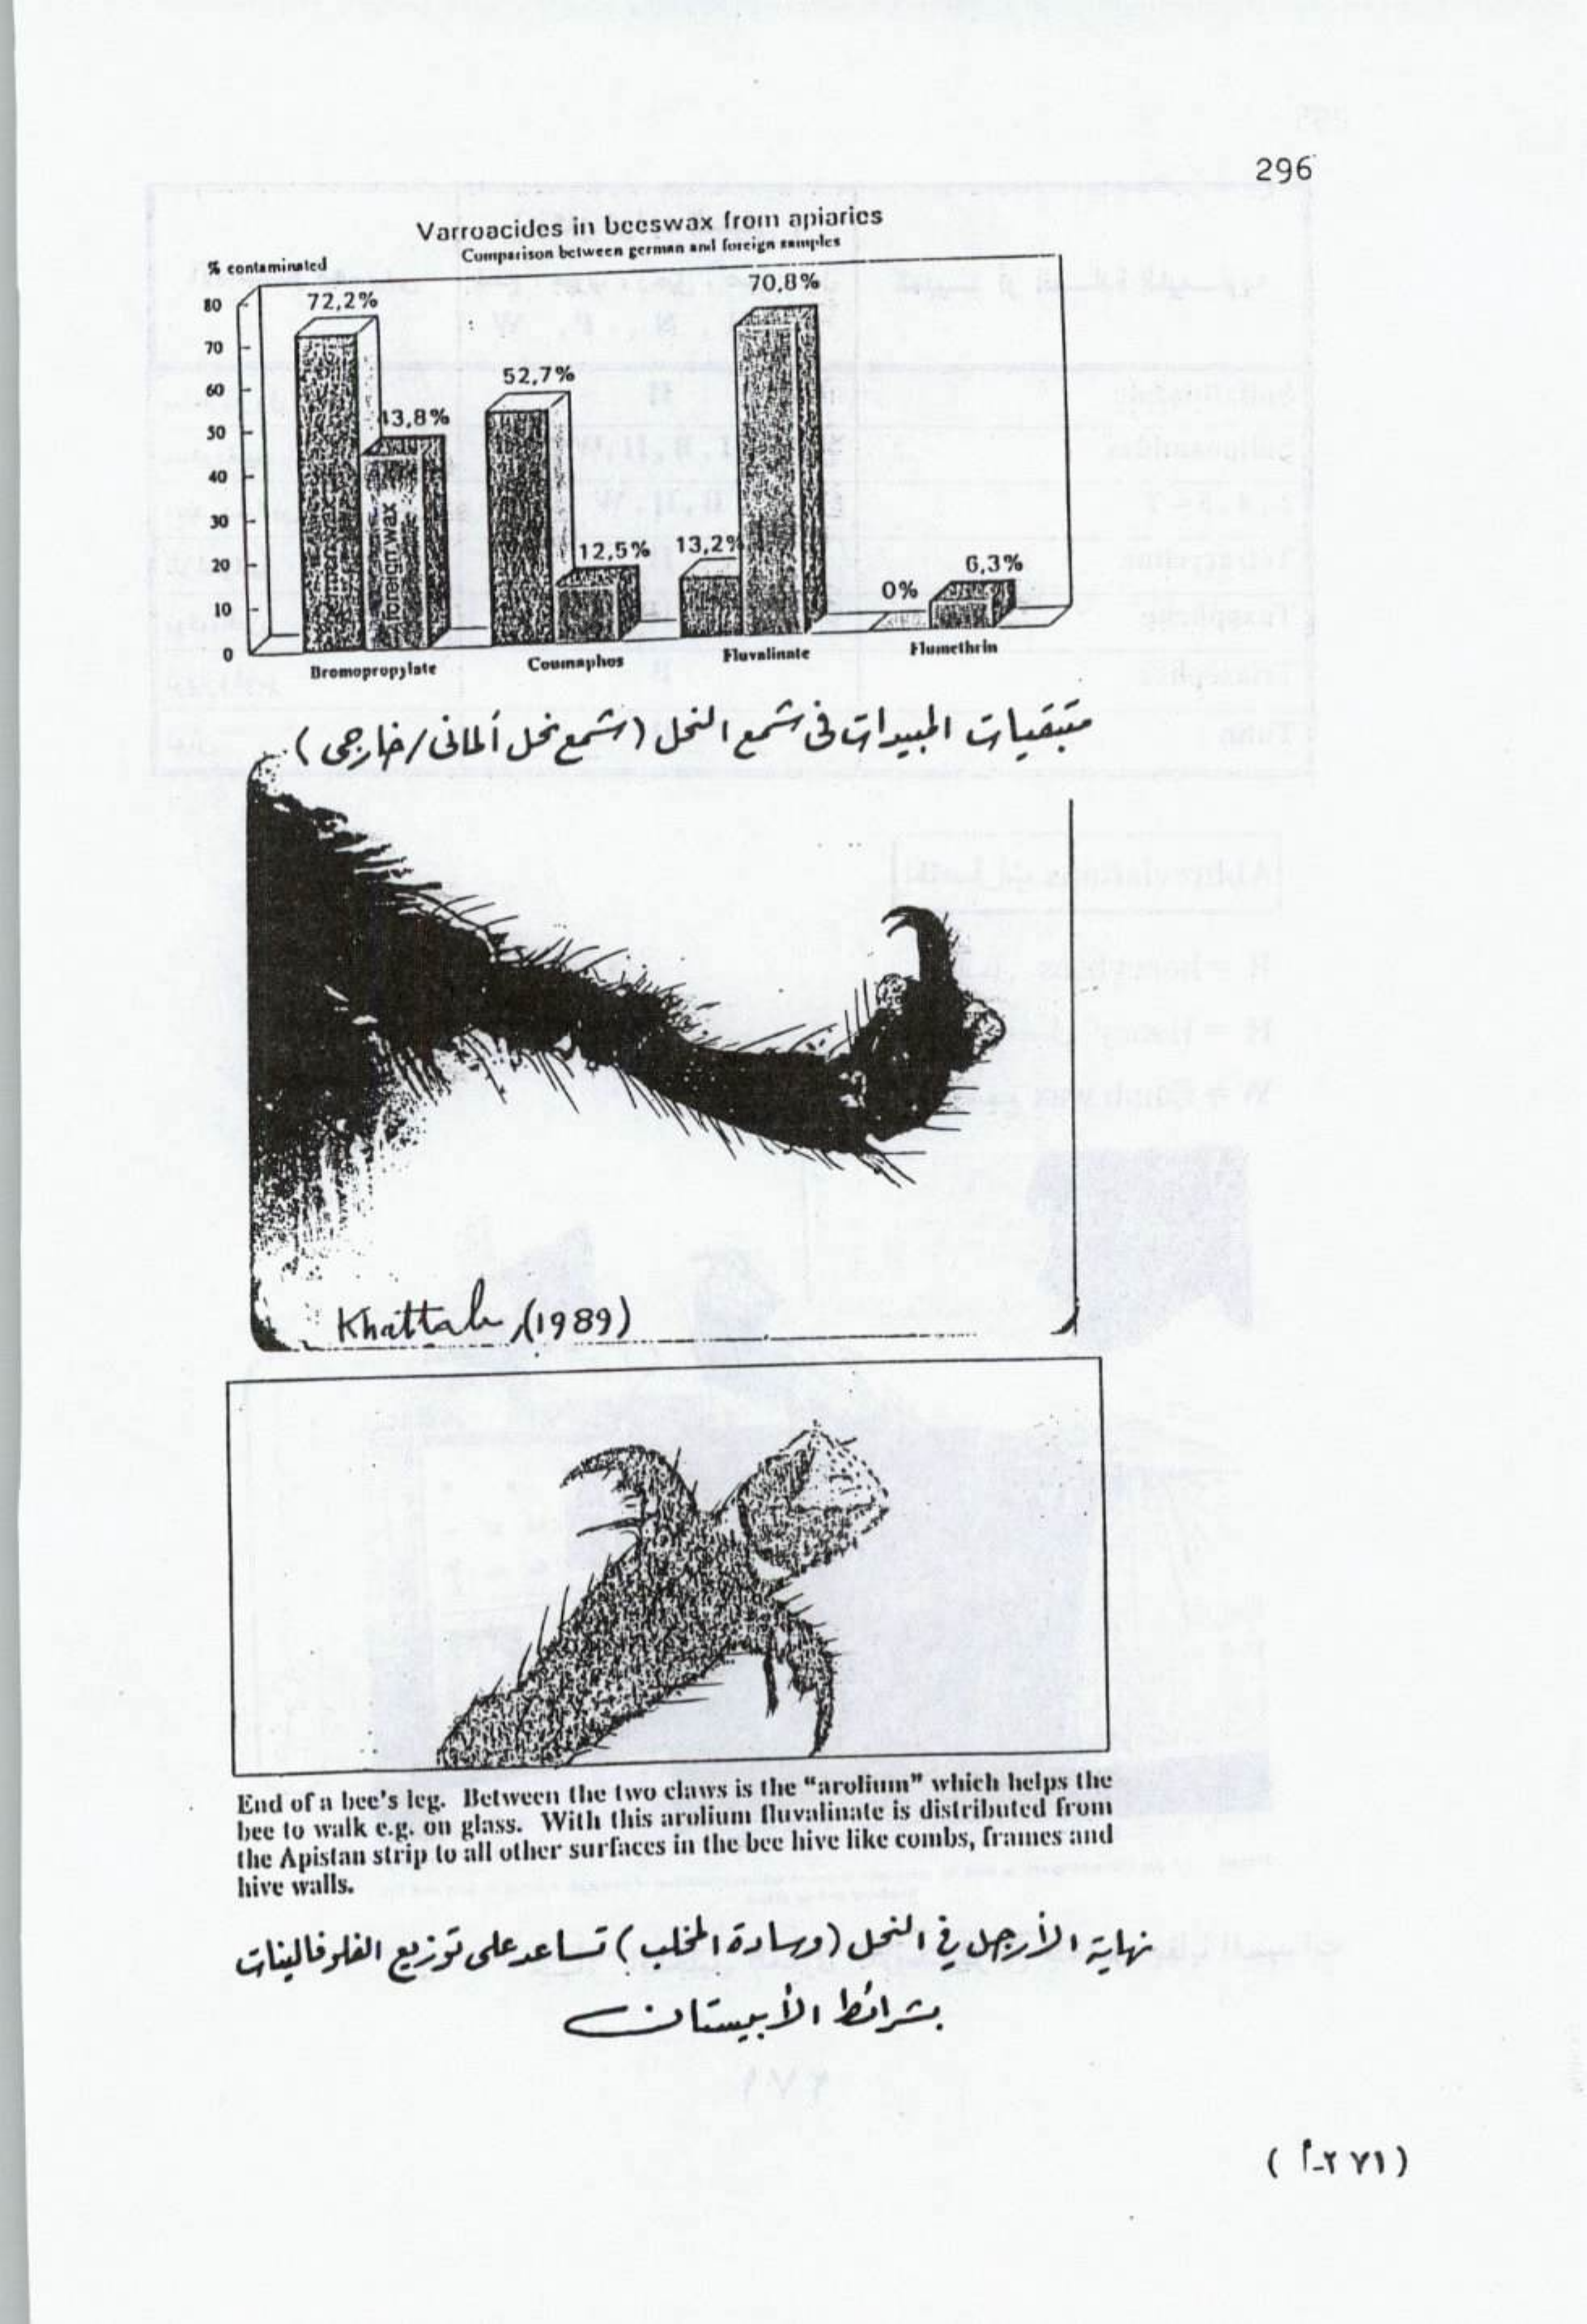 296
Varroacides in beeswax from apiaries
Comparison between german and foreign samples
% contaminated
80
70
60
50
40
30
20
10
0
72,2%
43,8%
52,7%
12,5%
13,2%
70,8%
0%
6,3%
german wax
foreign wax
Bromopropylate
Coumaphos
Fluvalinate
Flumethrin
متبقيات المبيدات فى شمع النحل (شمع نحل ألمانى/خارجى)
Khattab,(1989)
End of a bee's leg. Between the two claws is the "arolium" which helps the
bee to walk e.g. on glass. With this arolium fluvalinate is distributed from
the Apistan strip to all other surfaces in the bee hive like combs, frames and
hive walls.
نهاية الأرجل في النحل (وسادة المخلب) تساعد على توزيع الفلوفالينات
بشرائط الأبيستان
(٢٧١-أ)